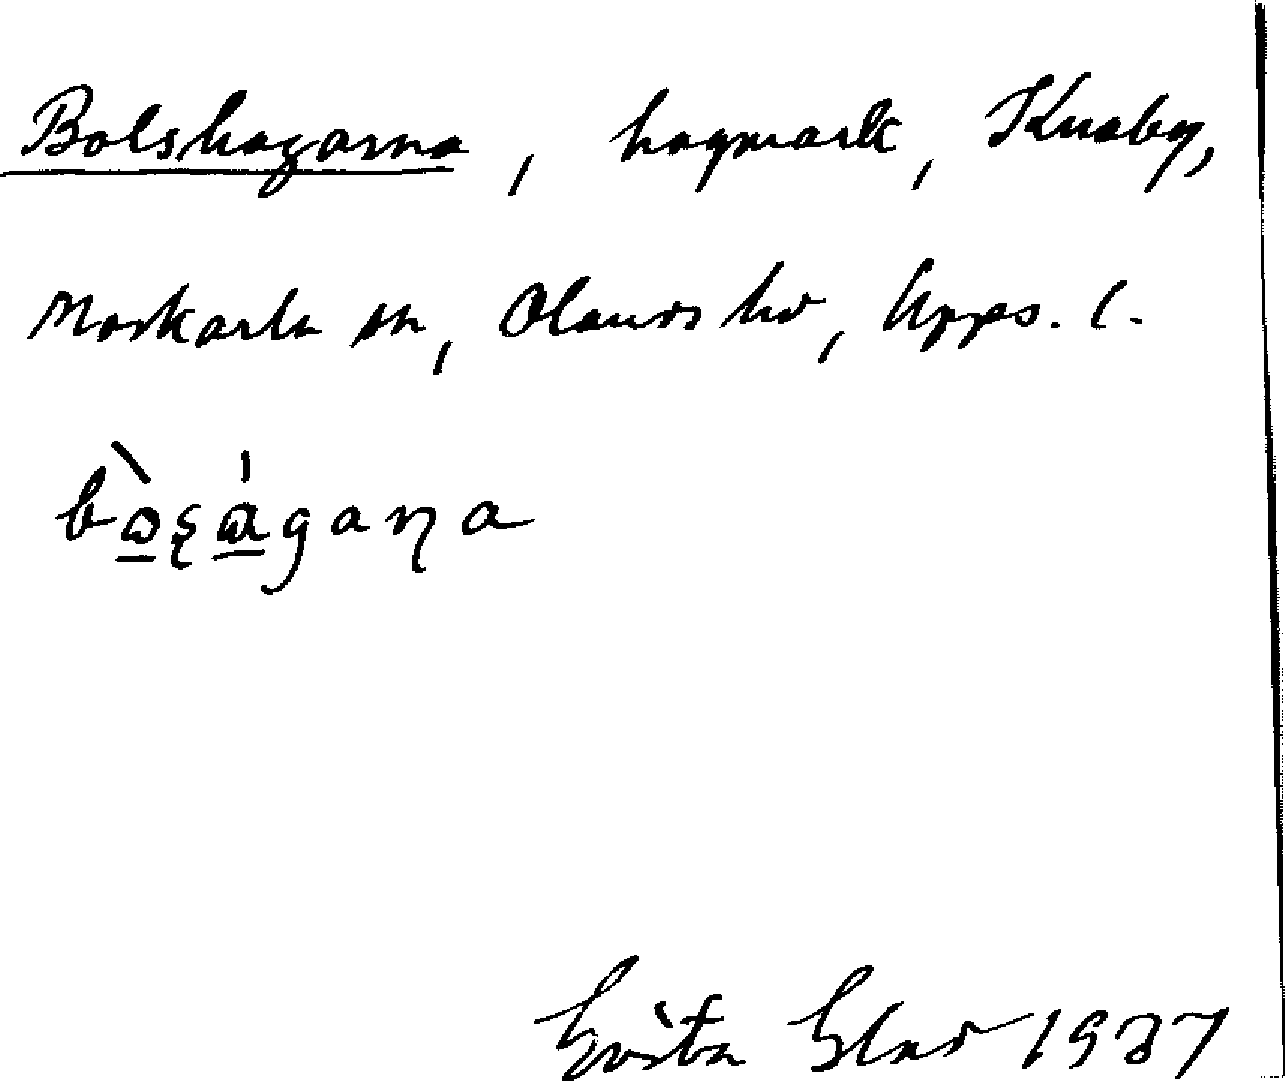 Bolshagarna, hagmark, Knaby,
Morkarla sn, Olands hd, Upps. l.
Gösta 1937